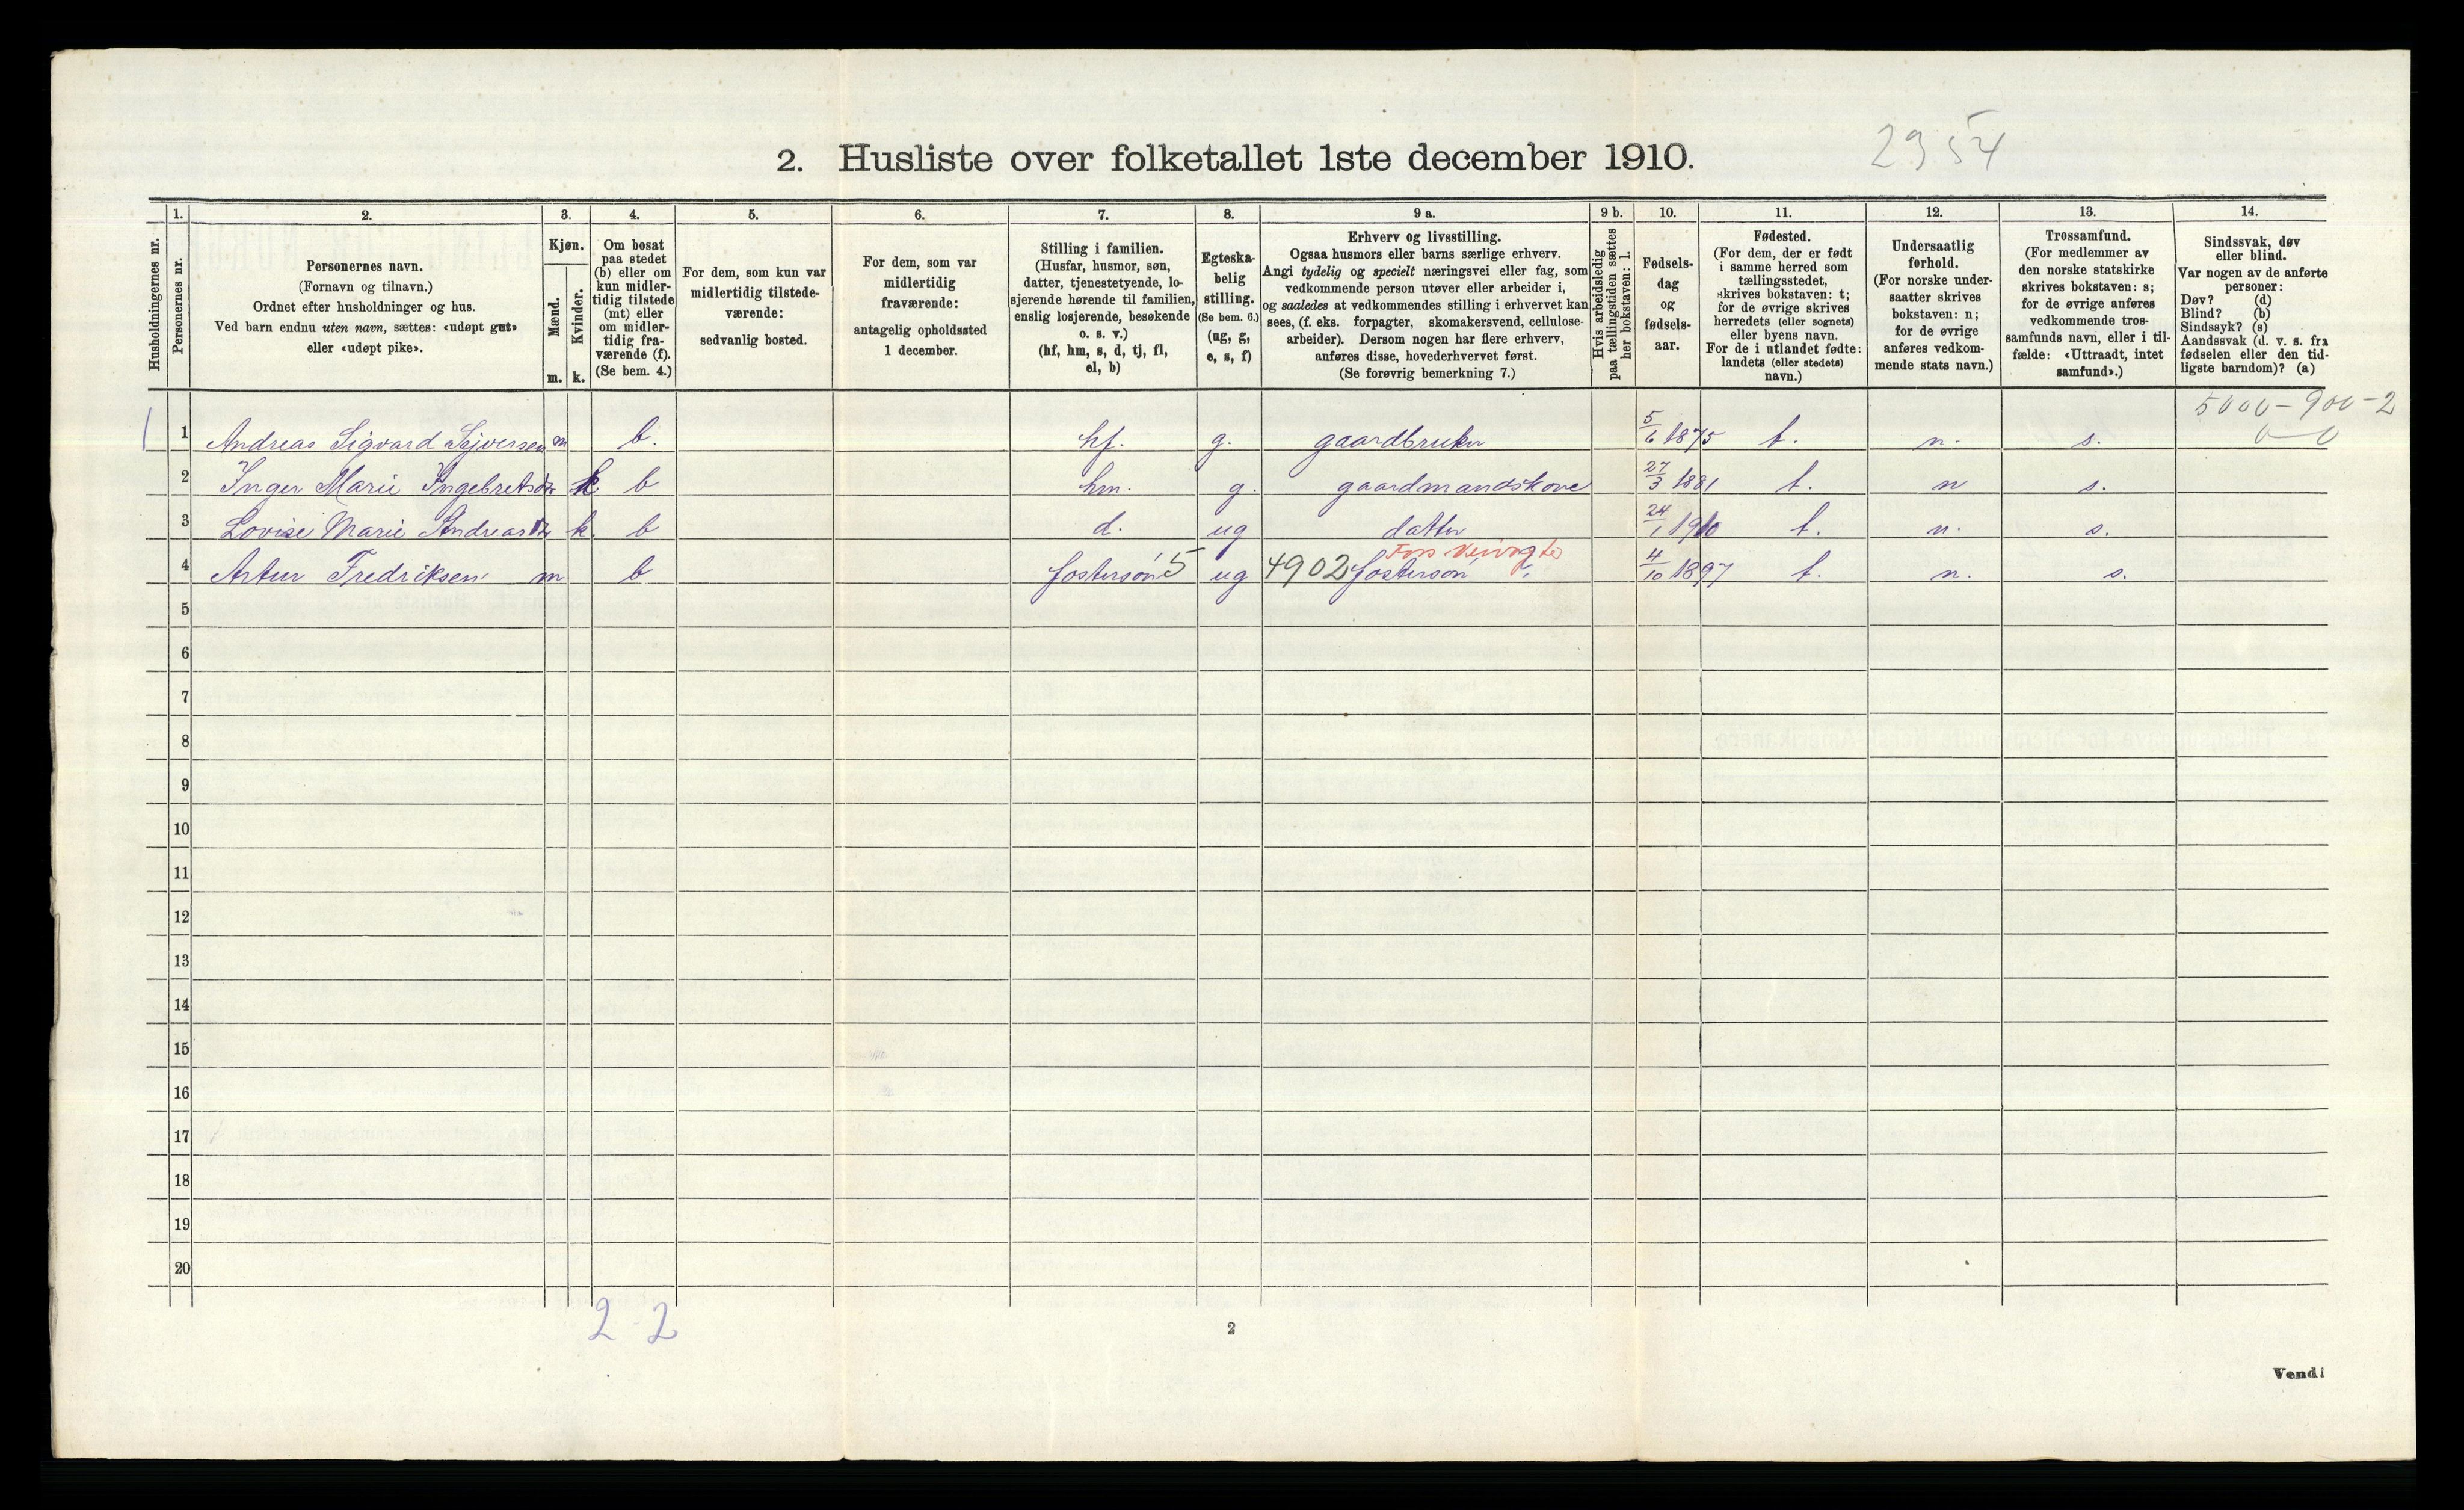 2954
2. Husliste over folketallet 1ste december 1910.
Husholdningernes nr.
1. Personernes nr.
2. Personernes navn.
(Fornavn og tilnavn.)
Ordnet efter husholdninger og hus.
Ved barn endnu uten navn, sættes: «udøpt gut»
eller «udøpt pike».
3. Kjøn.
Mænd. m.
Kvinder. k.
4. Om bosat
paa stedet
(b) eller om
kun midler-
tidig tilstede
(mt) eller
om midler-
tidig fra-
værende (f).
(Se bem. 4.)
5. For dem, som kun var
midlertidig tilstede-
værende:
sedvanlig bosted.
6. For dem, som var
midlertidig
fraværende:
antagelig opholdssted
1 december.
7. Stilling i familien.
(Husfar, husmor, søn,
datter, tjenestetyende, lo-
sjerende hørende til familien,
enslig losjerende, besøkende
o. s. v.)
(hf, hm, s, d, tj, fl,
el, b)
8. Egteska-
belig
stilling.
(Se bem. 6.)
(ug, g,
e, s, f)
9 a. Erhverv og livsstilling.
Ogsaa husmors eller barns særlige erhverv.
Angi tydelig og specielt næringsvei eller fag, som
vedkommende person utøver eller arbeider i,
og saaledes at vedkommendes stilling i erhvervet kan
sees, (f. eks. forpagter, skomakersvend, cellulose-
arbeider). Dersom nogen har flere erhverv,
anføres disse, hovederhvervet først.
(Se forøvrig bemerkning 7.)
9 b. Hvis arbeidsledig
paa tællingstiden sættes
her bokstaven: l.
10. Fødsels-
dag
og
fødsels-
aar.
11. Fødested.
(For dem, der er født
i samme herred som
tællingsstedet,
skrives bokstaven: t;
for de øvrige skrives
herredets (eller sognets)
eller byens navn.
For de i utlandet fødte:
landets (eller stedets)
navn.)
12. Undersaatlig
forhold.
(For norske under-
saatter skrives
bokstaven: n;
for de øvrige
anføres vedkom-
mende stats navn.)
13. Trossamfund.
(For medlemmer av
den norske statskirke
skrives bokstaven: s;
for de øvrige anføres
vedkommende tros-
samfunds navn, eller i til-
fælde: «Uttraadt, intet
samfund».)
14. Sindssvak, døv
eller blind.
Var nogen av de anførte
personer:
Døv? (d)
Blind? (b)
Sindssyk? (s)
Aandssvak (d. v. s. fra
fødselen eller den tid-
ligste barndom)? (a)
5000-900-2
0-0
1 1 Andreas Sigvard m b. hf. g. gaardbruker 5/6 1875 t. n. s.
2 Inger Marie Ingebretsdtr k. b hm. g. gaardmandskone 27/3 1881 t. n s.
3 Lovise Marie Andreasdtr k. b d. ug datter 24/1 1910 t. n. s.
4 Artur Fredriksen m b fostersøn 5 ug 4902 fostersøn 4/10 1897 t. n. s.
5
6
7
8
9
10
11
12
13
14
15
16
17
18
19
20
2-2
2
Vend!